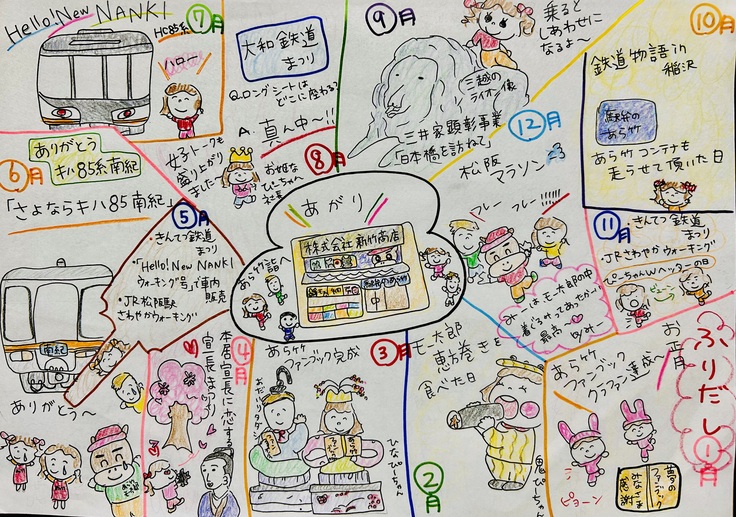 Hello! New NANKI
HC85系
7月
ハロー
大和鉄道
まつり
Q.ロングシートは
どこに座わる?
A.真ん中〜!!
女子トークも
盛り上がり
ました〜
8月
お姫な
ぴーちゃん
社長
9月
乗ると
しあわせに
なるよ〜
三越の
ライオン像
三井家顕彰事業
「日本橋を訪ねて」
10月
鉄道物語in
稲沢
駅弁の
あら竹
あら竹コンテナも
走らせて頂いた日
12月
松阪
マラソン
フレー フレー!!!!!!
みーはモー太郎の中
着ぐるみってあったかーい
最高〜
11月
・きんてつ鉄道
まつり
・JRさわやかウォーキング
ぴーちゃんWヘッダーの日
ビューン
6月
ありがとう
キハ85系南紀
「さよならキハ85南紀」
南紀
ありがとう〜
5月
・きんてつ鉄道
まつり
・「Hello! New NANKI
ウォーキング号」で車内
販売
・JR松阪駅
さわやかウォーキング
あがり
株式会社新竹商店
あら竹詣へ
4月
本居宣長に恋する
宣長まつり
3月
あら竹
ファンブック完成
おだいりタダシ
ひなぴーちゃん
2月
モー太郎
恵方巻きを
食べた日
鬼ぴーちゃん
ふりだし
1月
お正月
あら竹
ファンブック
クラファン達成へ
ピョーン
夢の
ファンブック
みなさま
感謝